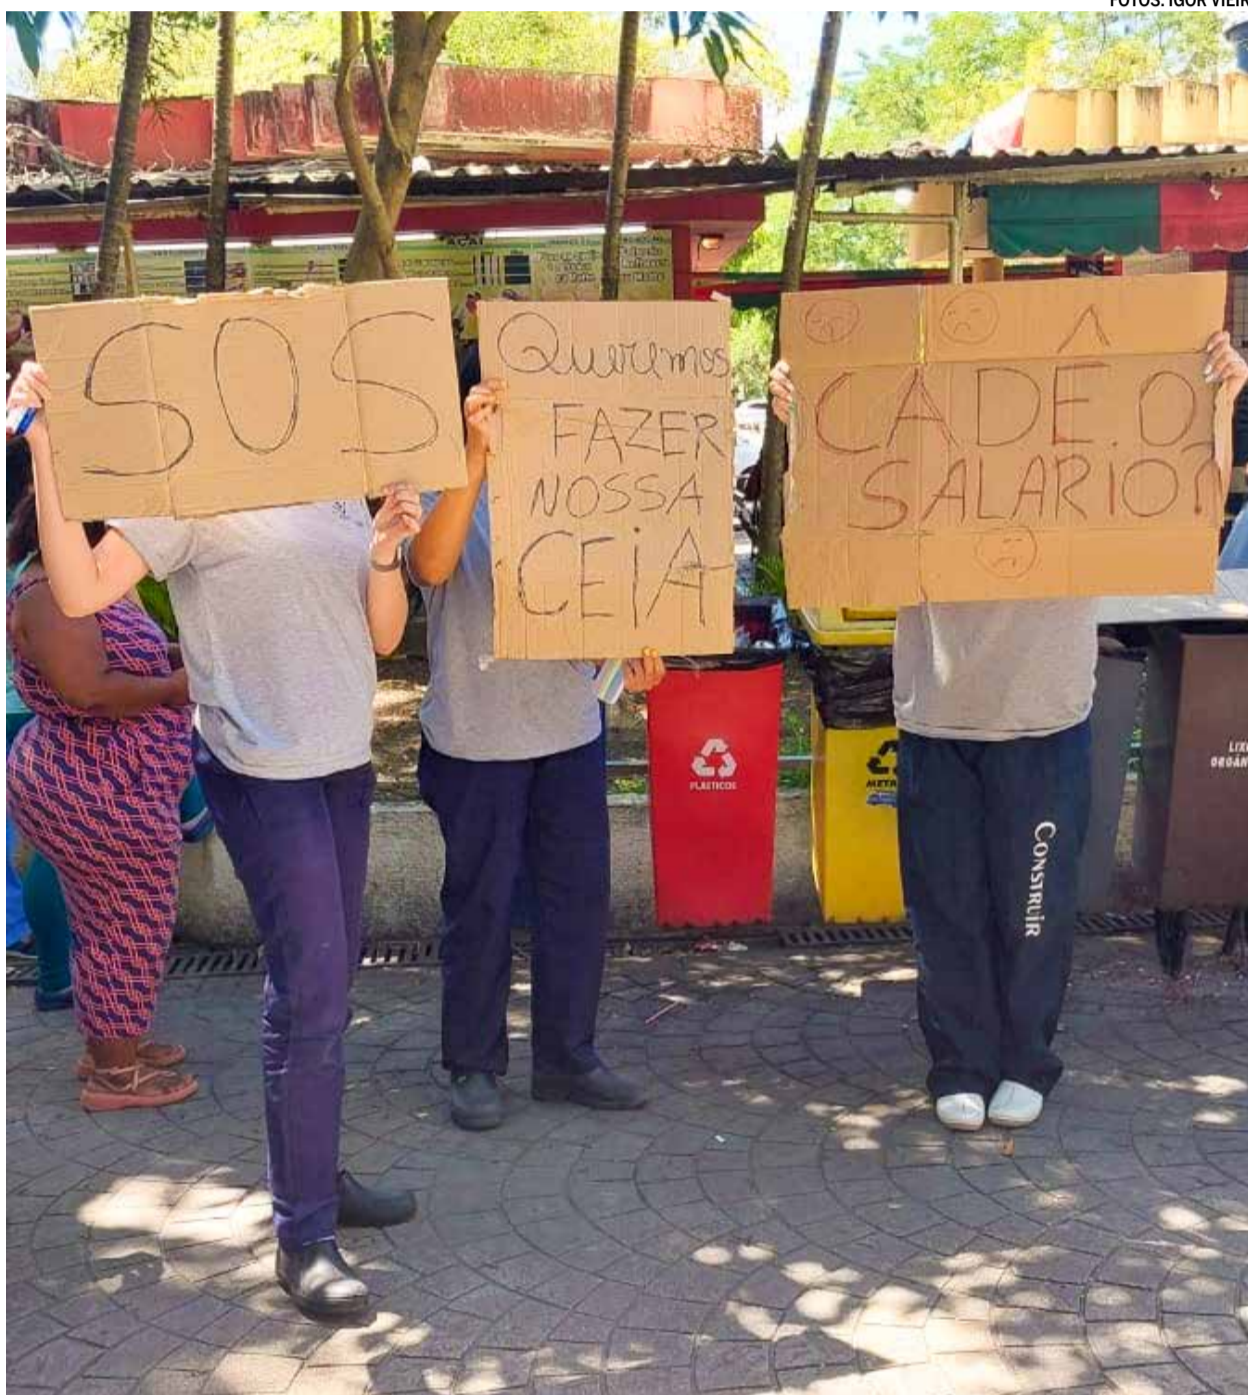 FOTOS: IGOR VIEIR
AÇAÍ
SOS
Queremos
FAZER
NOSSA
CEiA
CADÊ O
SALARIO?
PLÁSTICOS
METR
LIX
ORGÂN
CONSTRUIR